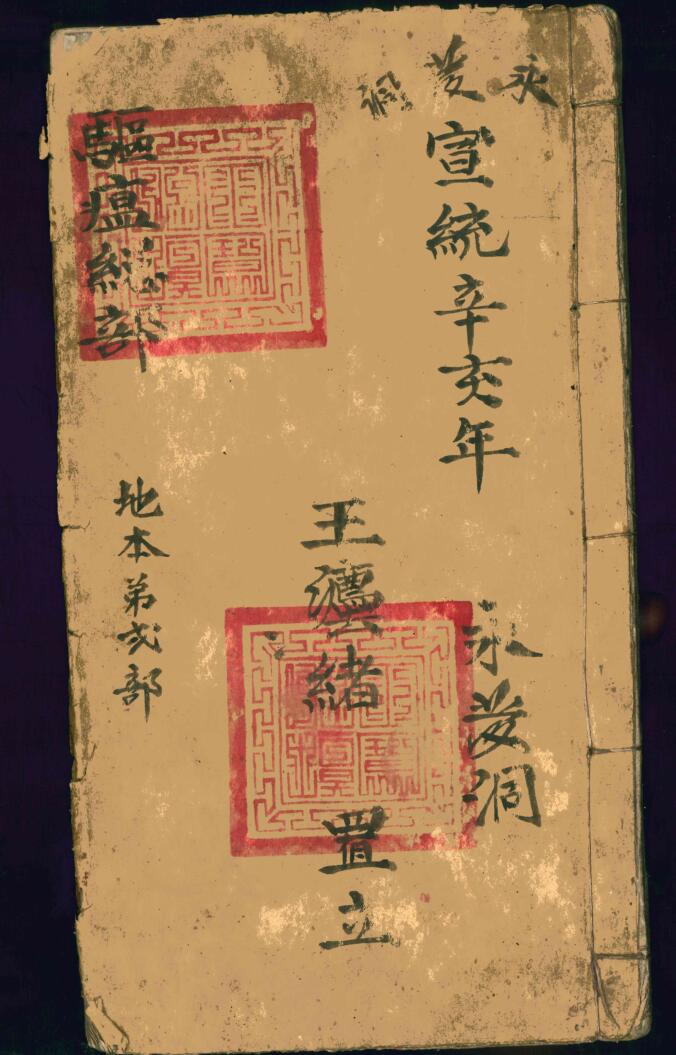 永菱洞
宣統辛亥年
永菱洞
王灋緒 置立
驅瘟總部
地本弟弍部